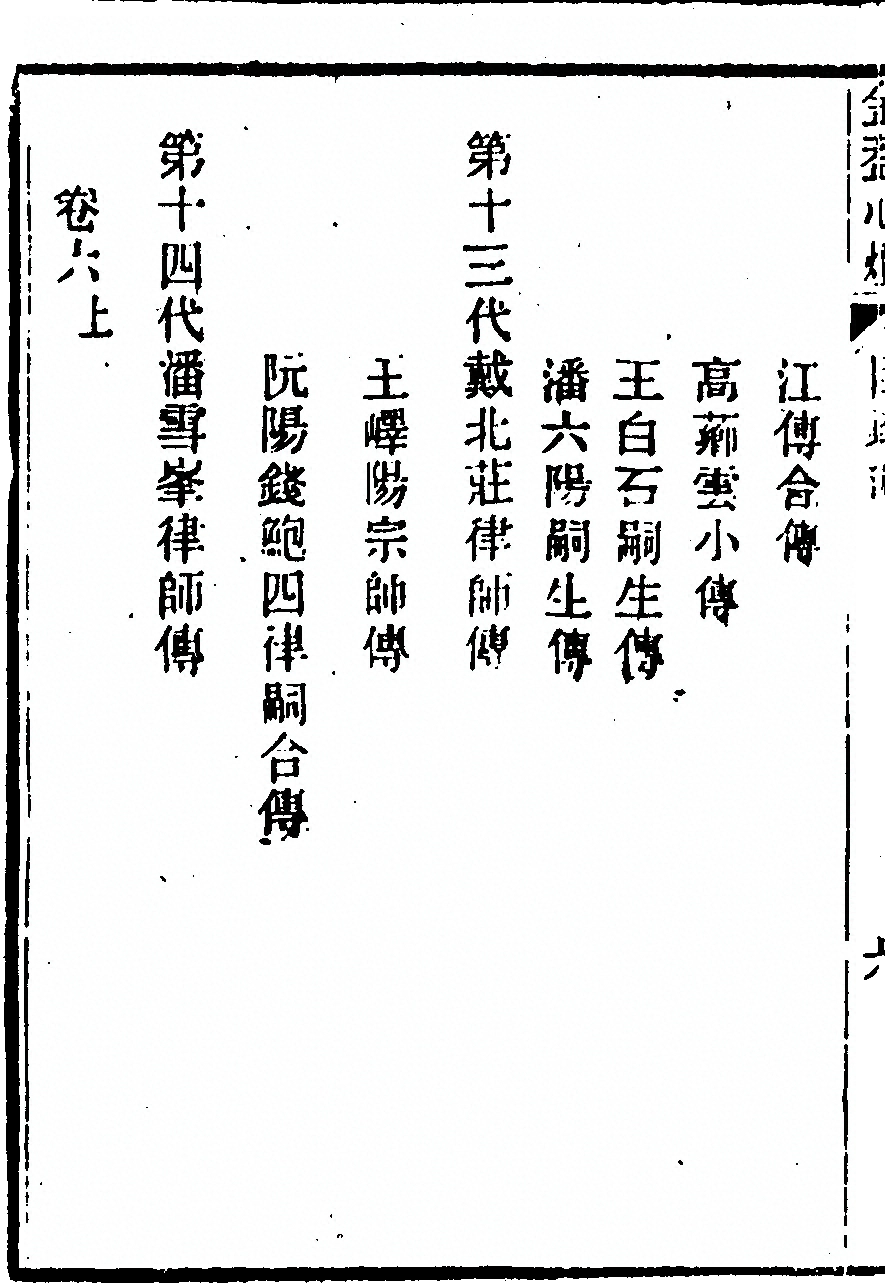 江傳合傳
高薌雲小傳
王白石嗣生傳
潘六陽嗣生傳
第十三代戴北莊律師傳
王嶧陽宗師傳
阮陽錢鮑四律嗣合傳
第十四代潘雪峯律師傳
卷六上